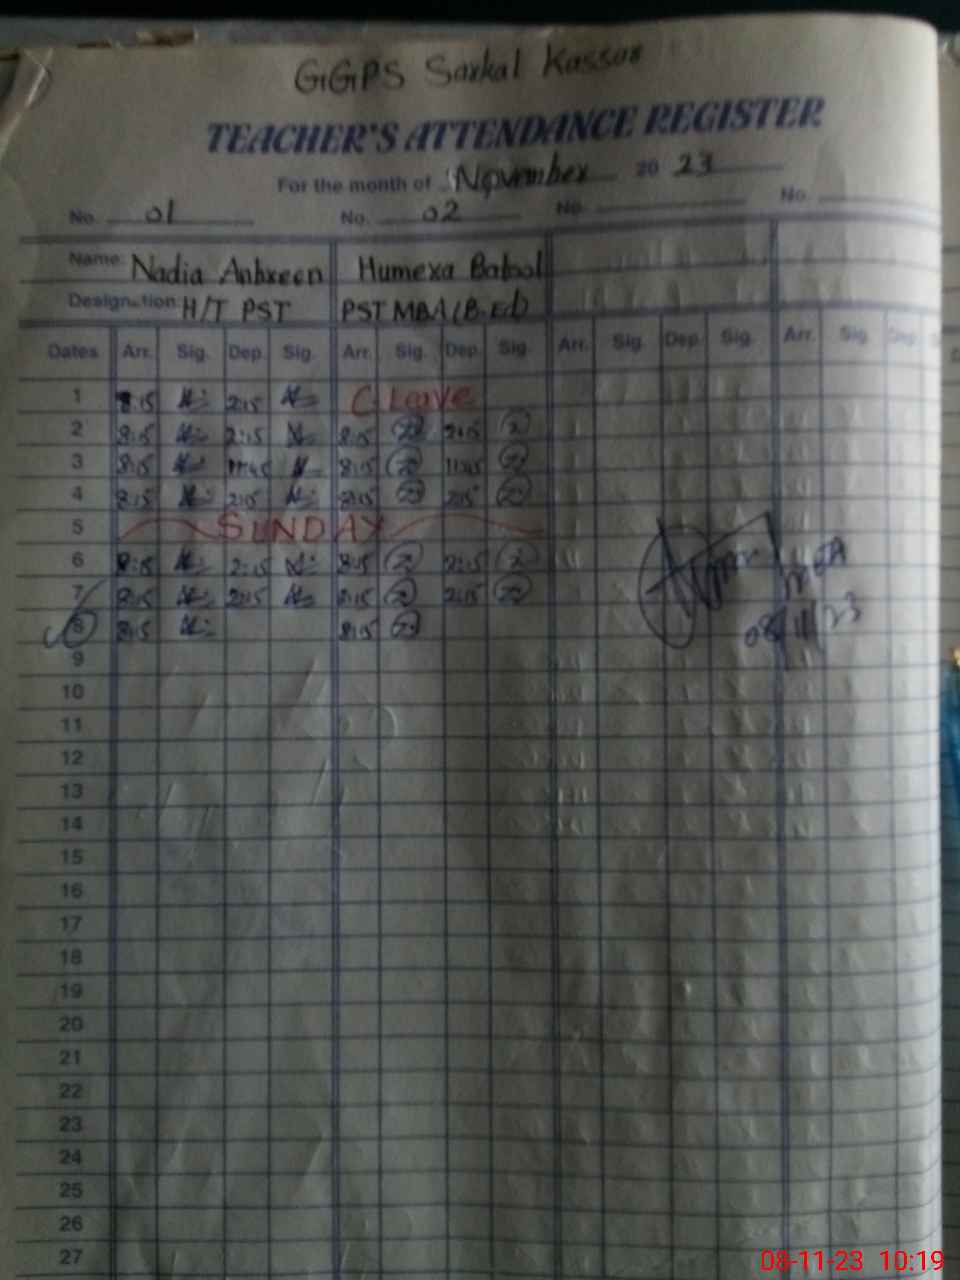 GGPS Sarkal Kassar
TEACHER'S ATTENDANCE REGISTER
For the month of November 2023
No. 01 No. 02 No. No.
Name: Nadia Anbreen Humera Batool
Designation: H/T PST PST MBA (B.Ed)
Dates Arr. Sig. Dep. Sig. Arr. Sig. Dep. Sig. Arr. Sig. Dep. Sig. Arr. Sig. Dep.
1 8:15 2:15 C Leave
2 8:15 2:15 8:15 2:15
3 8:15 11:45 8:15 11:45
4 8:15 2:15 8:15 2:15
5 SUNDAY
6 8:15 2:15 8:15 2:15
7 8:15 2:15 8:15 2:15
8 8:15 8:15
08/11/23
9
10
11
12
13
14
15
16
17
18
19
20
21
22
23
24
25
26
27
08-11-23 10:19